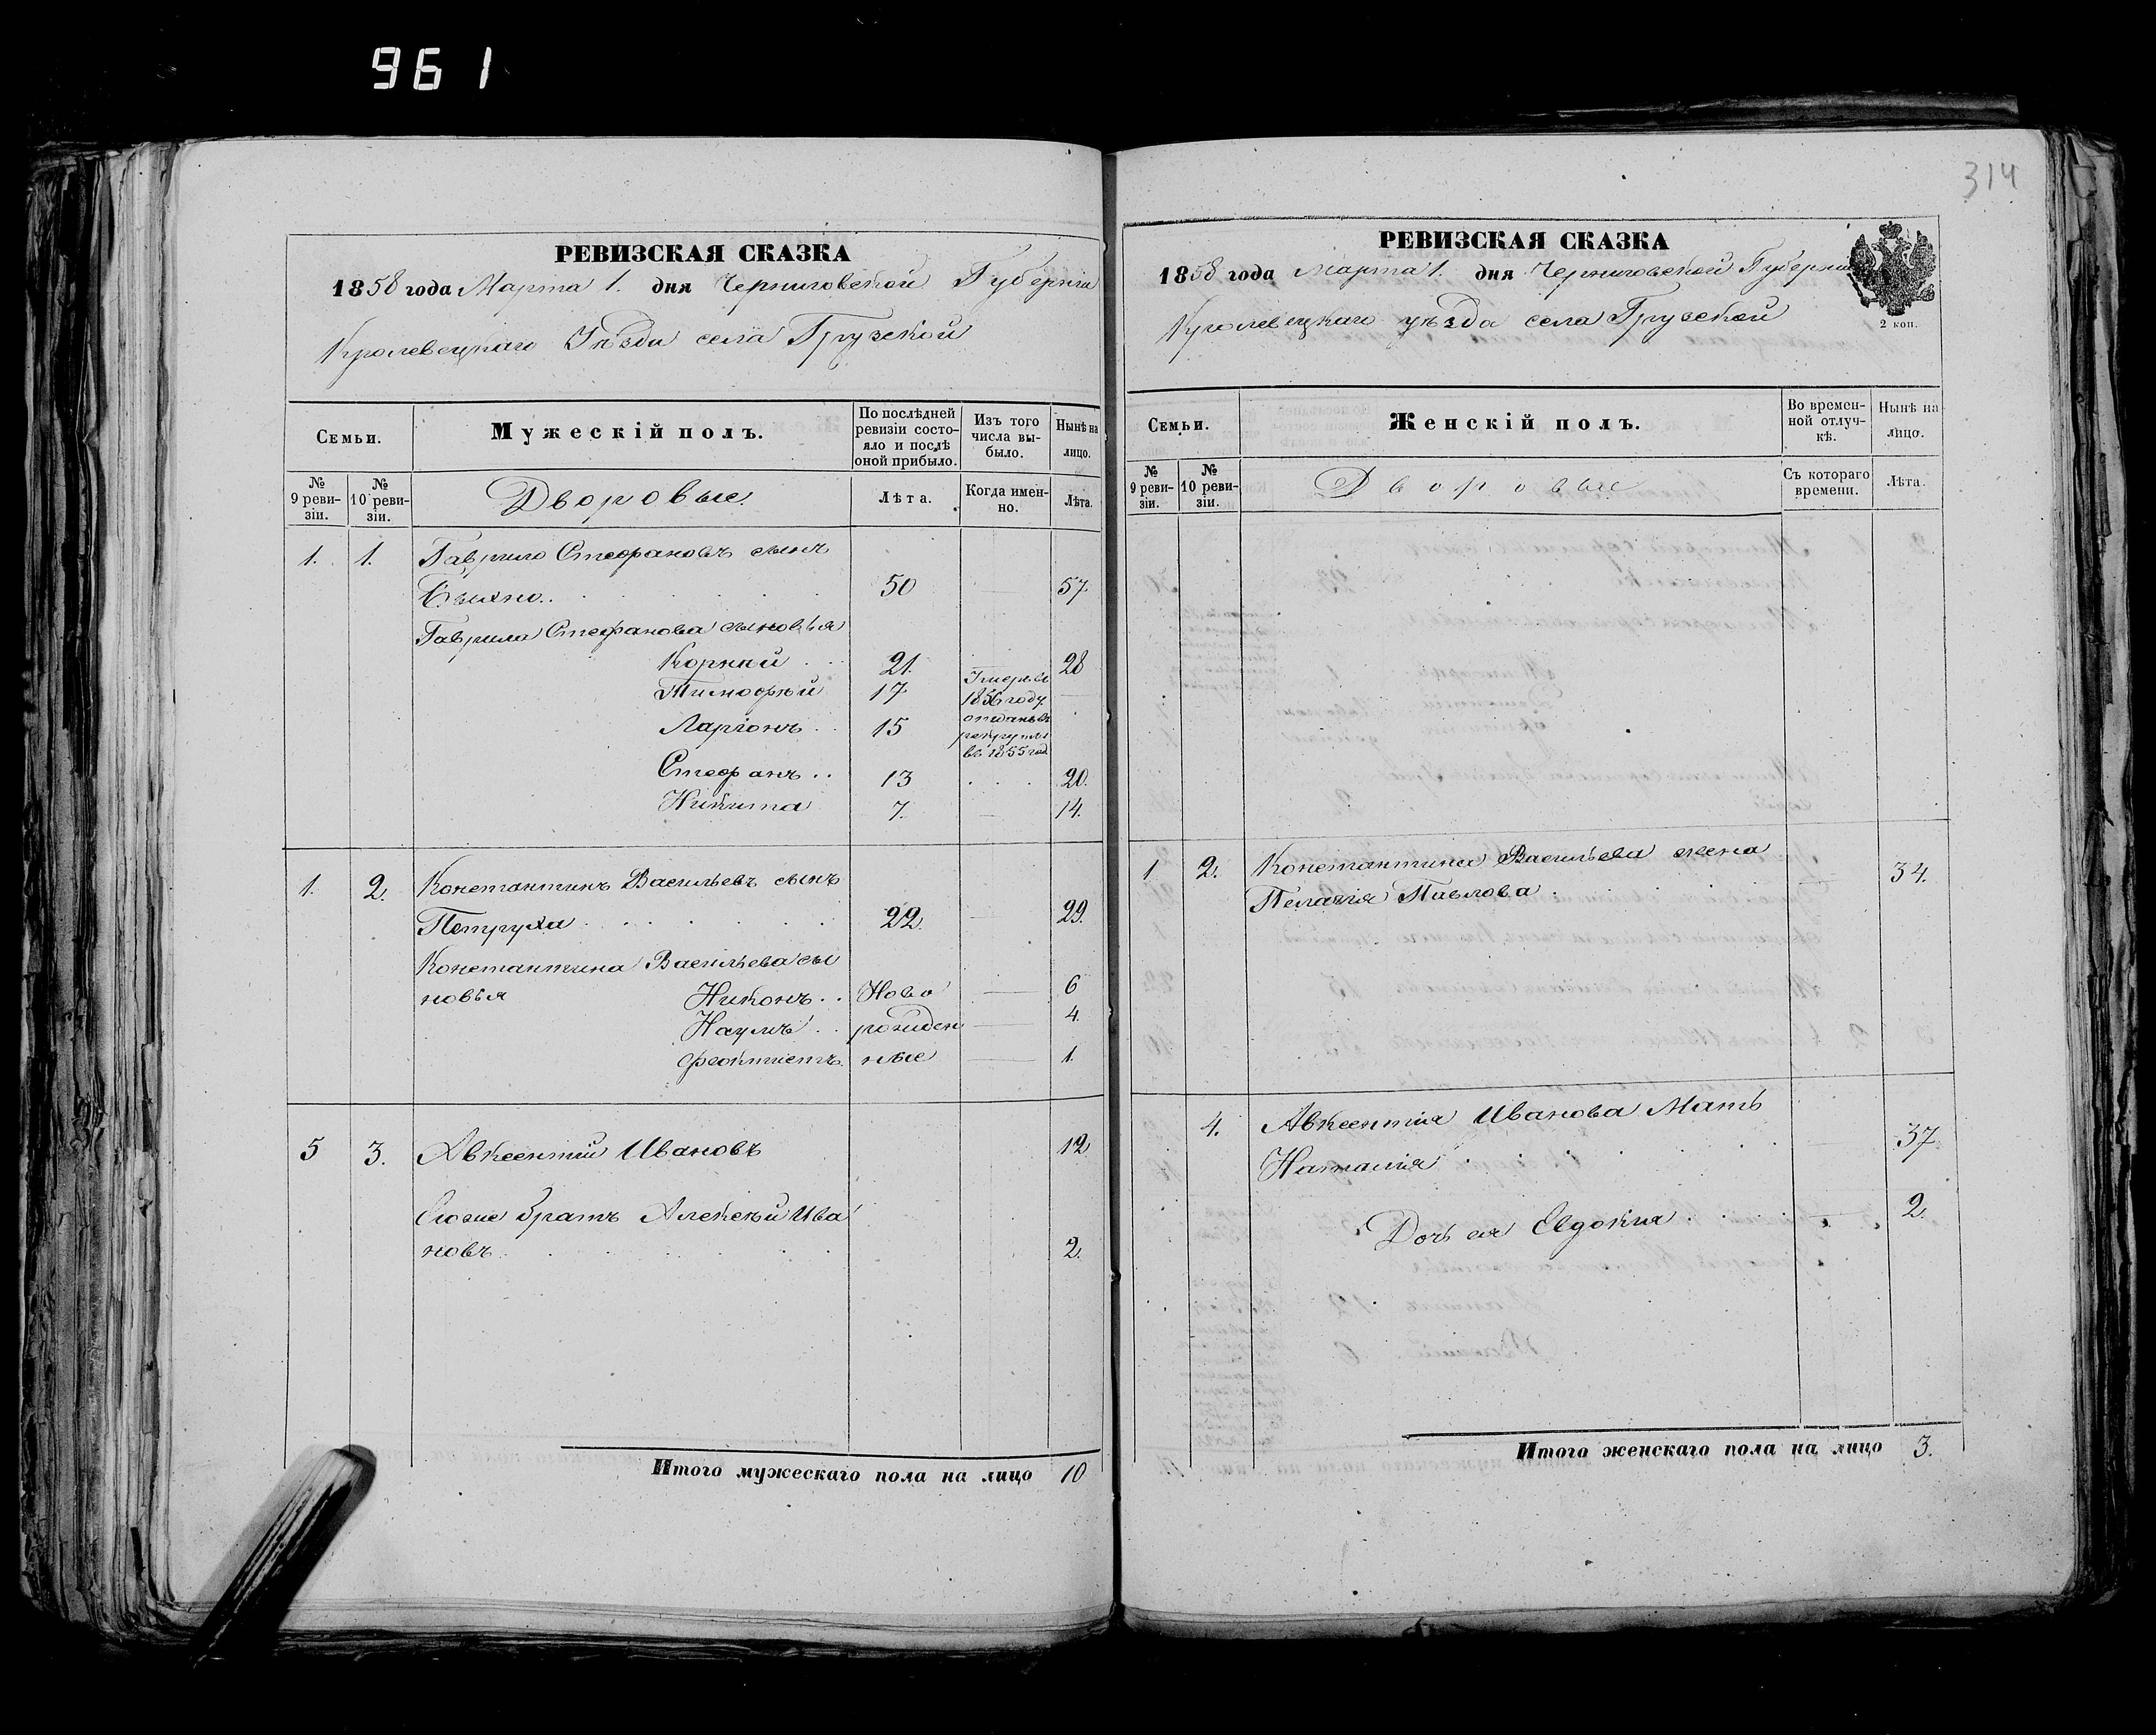 961
314
РЕВИЗСКАЯ СКАЗКА
1858 года Марта 1. дня Черниговской Губерніи
Кролевецкаго Уѣзда села Грузской
Семьи.
Мужескій полъ.
По послѣдней ревизіи состояло и послѣ оной прибыло.
Изъ того числа выбыло.
Нынѣ на лицо.
№ 9 ревизіи.
№ 10 ревизіи.
Дворовые.
Лѣта.
Когда именно.
Лѣта.
1. 1. Гаврило Стефановъ сынъ
50 57
Гаврила Стефанова сыновья
Корнѣй . . 21. 28
Тимофѣй 17 Умеръ въ 1856 году.
Ларіонъ . . 15 отданъ въ рекруты въ 1855 год
Стефанъ . . 13 . . . 20.
Никита 7. 14.
1. 2. Константинъ Васильевъ сынъ
Петруха 22. 29.
Константина Васильева сы
новья Никонъ . . Ново 6
Наумъ . . рожден 4.
Феоктистъ. ные 1.
5 3. Авксентій Ивановъ 12
братъ Алексѣй Ива
новъ 2.
Итого мужескаго пола на лицо 10
РЕВИЗСКАЯ СКАЗКА
1858 года Марта 1. дня Черниговской Губерніи
Кролевецкаго уѣзда села Грузской
2 коп.
Семьи.
Женскій полъ.
Во временной отлучкѣ.
Нынѣ на лицо.
№ 9 ревизіи.
№ 10 ревизіи.
Дворовые
Съ котораго времени.
Лѣта.
1 2. Константина Васильева жена
Пелагія Павлова . 34.
4. Авксентія Иванова Мать
Наталія 37
Дочь ея Евдокия 2.
Итого женскаго пола на лицо 3.